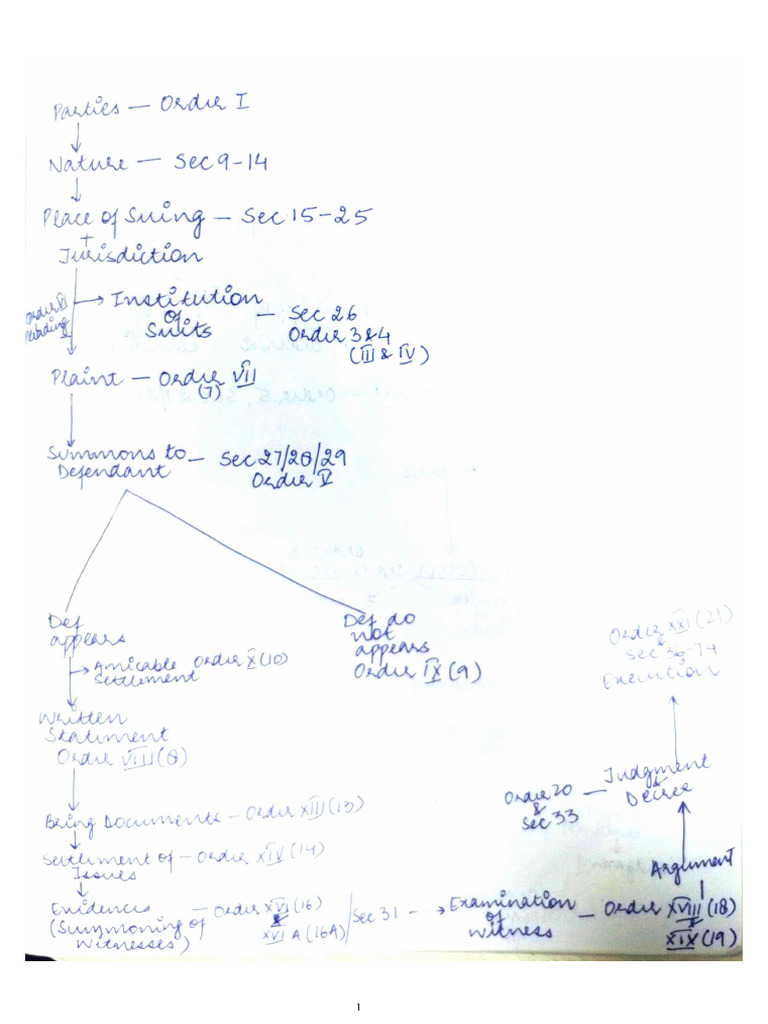 Parties — Order I
Nature — Sec 9-14
Place of Suing — Sec 15-25
+
Jurisdiction
Order VI
Pleading
Institution
of
Suits
— Sec 26
Order 3 & 4
(III & IV)
Plaint — Order VII
(7)
Summons to
Defendant
— Sec 27/28/29
Order V
Def
appears
Def do
not
appears
Order IX (9)
Amicable Order X (10)
Settlement
Written
Statement
Order VIII (8)
Being Documents — Order XIII (13)
Settlement of — Order XIV (14)
Issues
Evidences
(Summoning of
Witnesses)
— Order XVI (16)
&
XVI A (16A)
/ Sec 31
Examination
of
Witness
— Order XVIII (18)
&
XIX (19)
Argument
Judgment
&
Decree
Order 20
&
Sec 33
Order XXI (21)
&
Sec 36-74
Execution
1